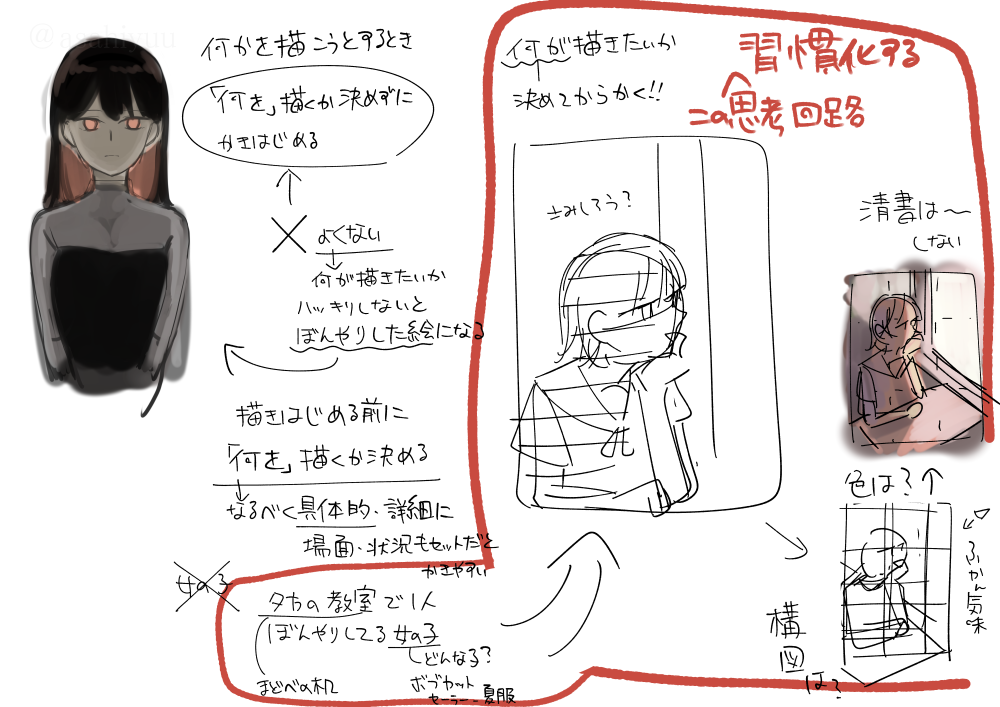 何かを描こうとするとき
「何を」描くか決めずに
かきはじめる
よくない
何が描きたいか
ハッキリしないと
ぼんやりした絵になる
描きはじめる前に
「何を」描くか決める
なるべく具体的・詳細に
場面・状況もセットだと
かきやすい
女の子
夕方の教室で1人
ぼんやりしてる女の子
どんな子?
まどべの机
ボブカット
セーラー・夏服
何が描きたいか
決めてからかく!!
習慣化する
この思考回路
さみしそう?
清書は〜
しない
色は?↑
ふかん気味
構図
は?